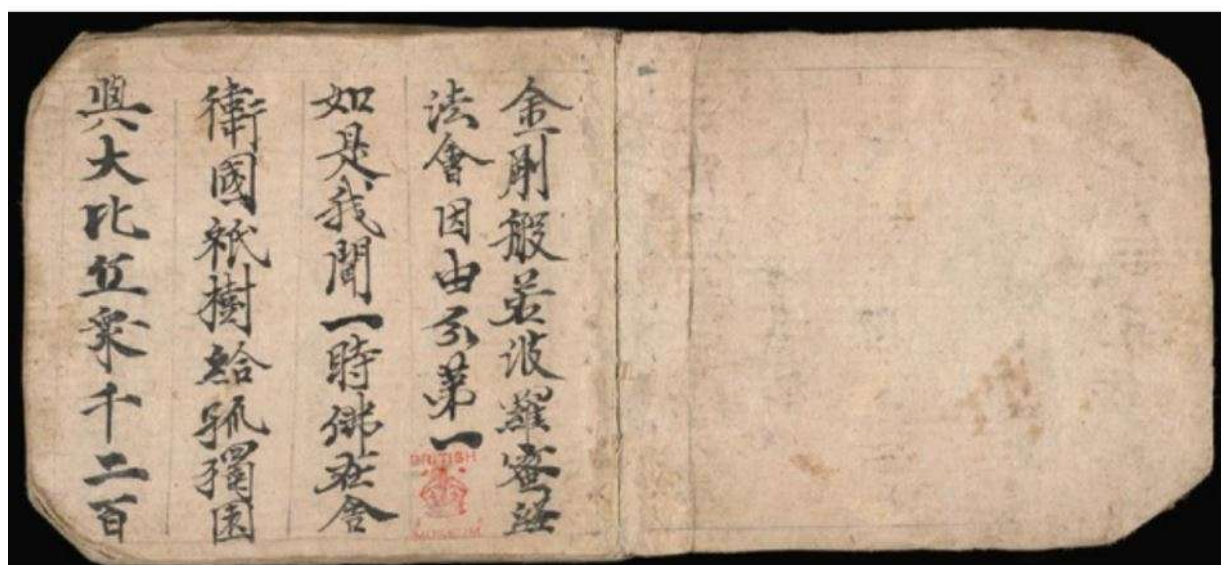 金剛般若波羅蜜經
法會因由分第一
如是我聞一時佛在舍
衛國祇樹給孤獨園
與大比丘衆千二百
BRITISH
MUSEUM